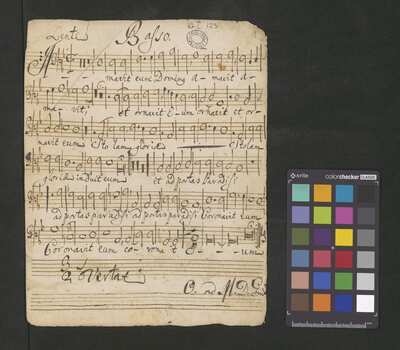 Lente Basso.
mavit eum Dominus a- mavit a-
mavit, et ornavit Eum ornavit et or-
navit eum Stolam gloriæ Stolam
gloriæ induit eum et ad portas Paradisi
ad portas paradisi ad portas paradisi Coronavit Eum
Coronavit eum co- rona- vit e- um
Verta
xrite colorchecker CLASSIC